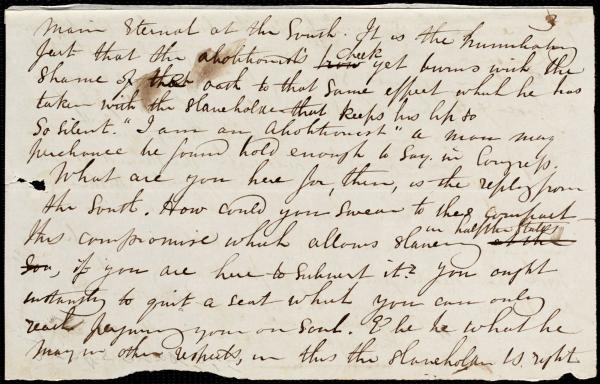 main Eternal at the South. It is the humiliating
fact that the abolitionist's cheek yet burns with the
shame of that oath to that same effect what he has
taken with the slaveholder that keeps his lip so
So silent. "I am an Abolitionist" a man may
perchance be found bold enough to say. in Congress.
What are you here for, then, is the reply from
the South. How could you swear to the compact
this compromise which allows slavery in half the States
if you are here to subvert it? You ought
instantly to quit a seat which you can only
reach perjuring your own soul. & be he what he
may in other respects, in this the slaveholder is right